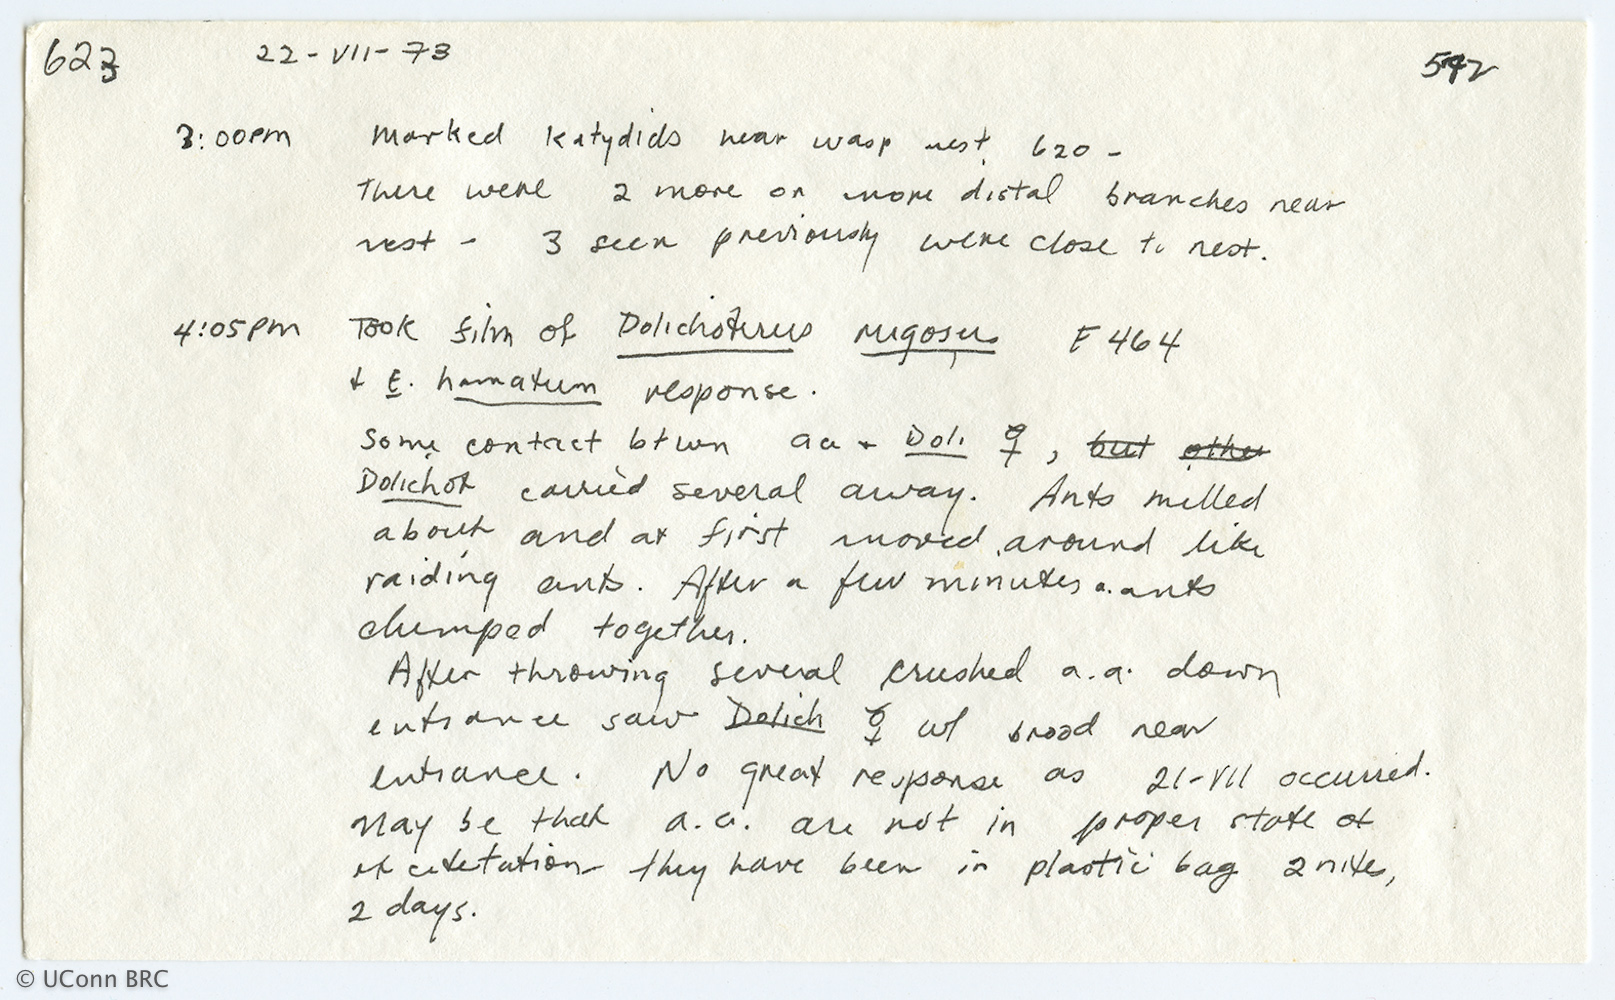 623 22-VII-73 542
3:00pm Marked katydids near wasp nest 620 -
There were 2 more on more distal branches near
nest - 3 seen previously were close to nest.
4:05pm Took film of Dolichoterus rugosus F464
+ E. hamatum response.
Some contact btwn aa + Doli ☿, but other
Dolichot carried several away. Ants milled
about and at first moved around like
raiding ants. After a few minutes a. ants
clumped together.
After throwing several crushed a.a. down
entrance saw Dolich ☿ w/ brood near
entrance. No great response as 21-VII occurred.
May be that a.a. are not in proper state of
excitetation they have been in plastic bag 2 nites,
2 days.
© UConn BRC